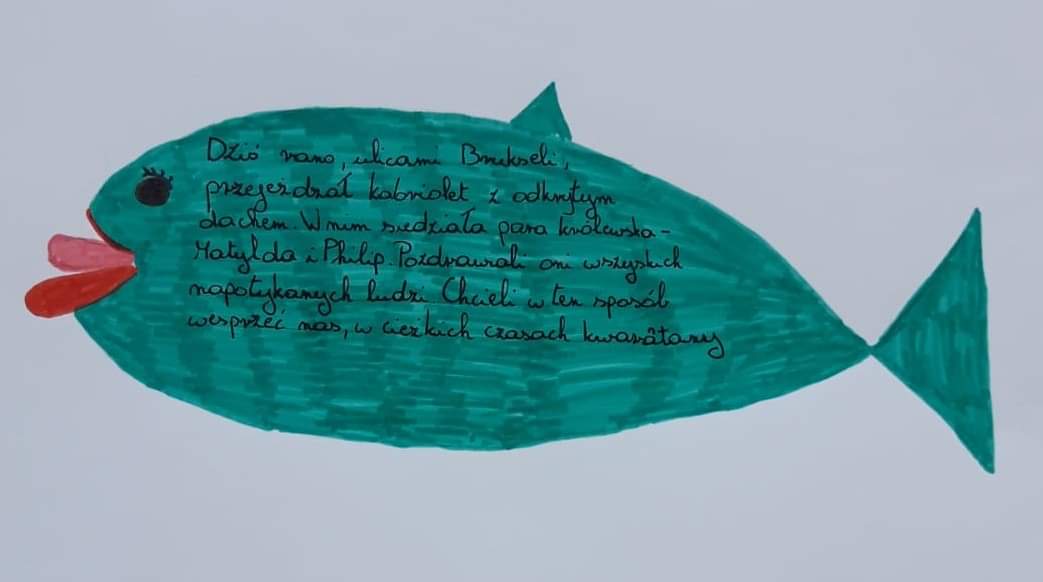 Dziś rano, ulicami Brukseli,
przejeżdżał kabriolet z odkrytym
dachem. W nim siedziała para królewska -
Matylda i Philip. Pozdrawiali oni wszystkich
napotykanych ludzi. Chcieli w ten sposób
wesprzeć nas, w cieżkich czasach kwarantanny